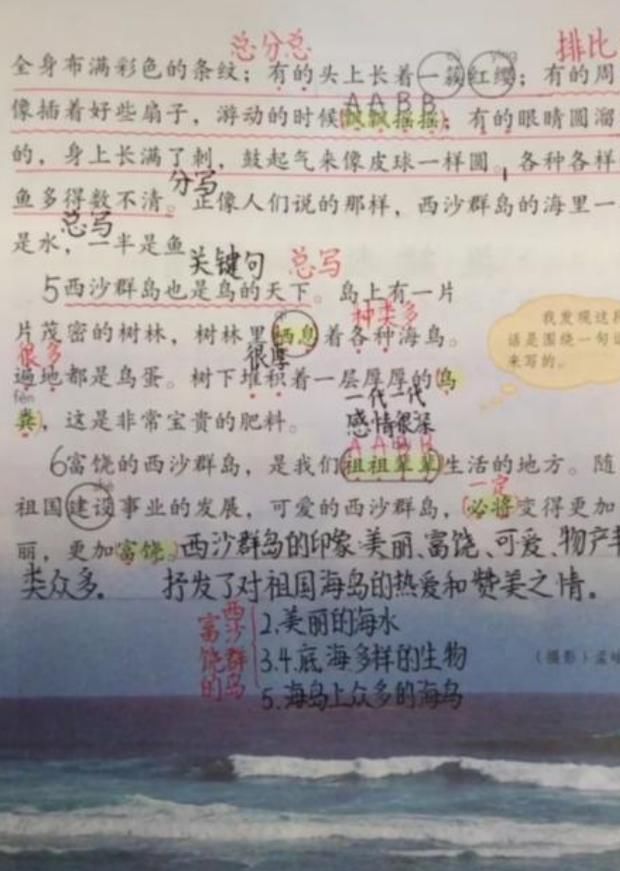 总分总 排比
全身布满彩色的条纹；有的头上长着一簇红缨；有的周
A A B B
像插着好些扇子，游动的时候飘飘摇摇；有的眼睛圆溜
的，身上长满了刺，鼓起气来像皮球一样圆。各种各样
分写
鱼多得数不清。正像人们说的那样，西沙群岛的海里一
总写
是水，一半是鱼
关键句 总写
5西沙群岛也是鸟的天下。岛上有一片
种类多
片茂密的树林，树林里栖息着各种海鸟。
很多 很厚
遍地都是鸟蛋。树下堆积着一层厚厚的鸟
fèn 一代一代
粪，这是非常宝贵的肥料。 感情很深
A A B B
6富饶的西沙群岛，是我们祖祖辈辈生活的地方。随
一定
祖国建设事业的发展，可爱的西沙群岛，必将变得更加
丽，更加富饶。西沙群岛的印象:美丽、富饶、可爱、物产丰
类众多。 抒发了对祖国海岛的热爱和赞美之情。
富饶的西沙群岛
2.美丽的海水
3.4.底海多样的生物
5.海岛上众多的海鸟
我发现这段
话是围绕一句话
来写的。
（摄影）孟